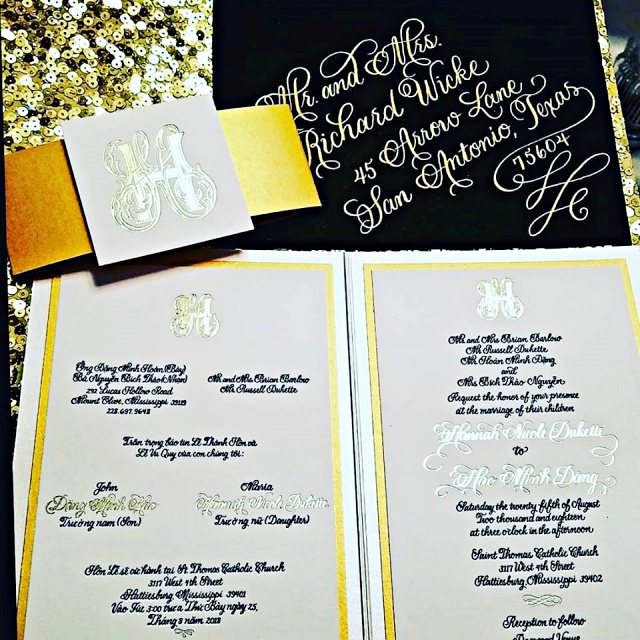 Mr. and Mrs.
Richard Wicke
45 Arrow Lane
San Antonio, Texas
75604
H
H
H
Ông Đặng Minh Hoàn (Bảy)
Bà Nguyễn Bích Thảo (Nhàn)
292 Lucas Hollow Road
Mount Olive, Mississippi 39119
228.697.9648
Mr. and Mrs Brian Barlow
Mr. Russell Dukette
Trân trọng báo tin Lễ Thành Hôn và
Lễ Vu Quy của con chúng tôi:
John
Đặng Minh Hảo
Trưởng nam (Son)
Maria
Hannah Nicole Dukette
Trưởng nữ (Daughter)
Hôn Lễ sẽ cử hành tại St. Thomas Catholic Church
3117 West 4th Street
Hattiesburg, Mississippi 39401
Vào Lúc 3:00 trưa Thứ Bảy ngày 25,
Tháng 8 năm 2018
Mr. and Mrs Brian Barlow
Mr. Russell Dukette
Mr. Hoàn Minh Đặng
and
Mrs Bích Thảo Nguyễn
Request the honor of your presence
at the marriage of their children
Hannah Nicole Dukette
to
Hảo Minh Đặng
Saturday the twenty fifth of August
Two thousand and eighteen
at three o'clock in the afternoon
Saint Thomas Catholic Church
3117 West 4th Street
Hattiesburg, Mississippi 39402
Reception to follow
Venue